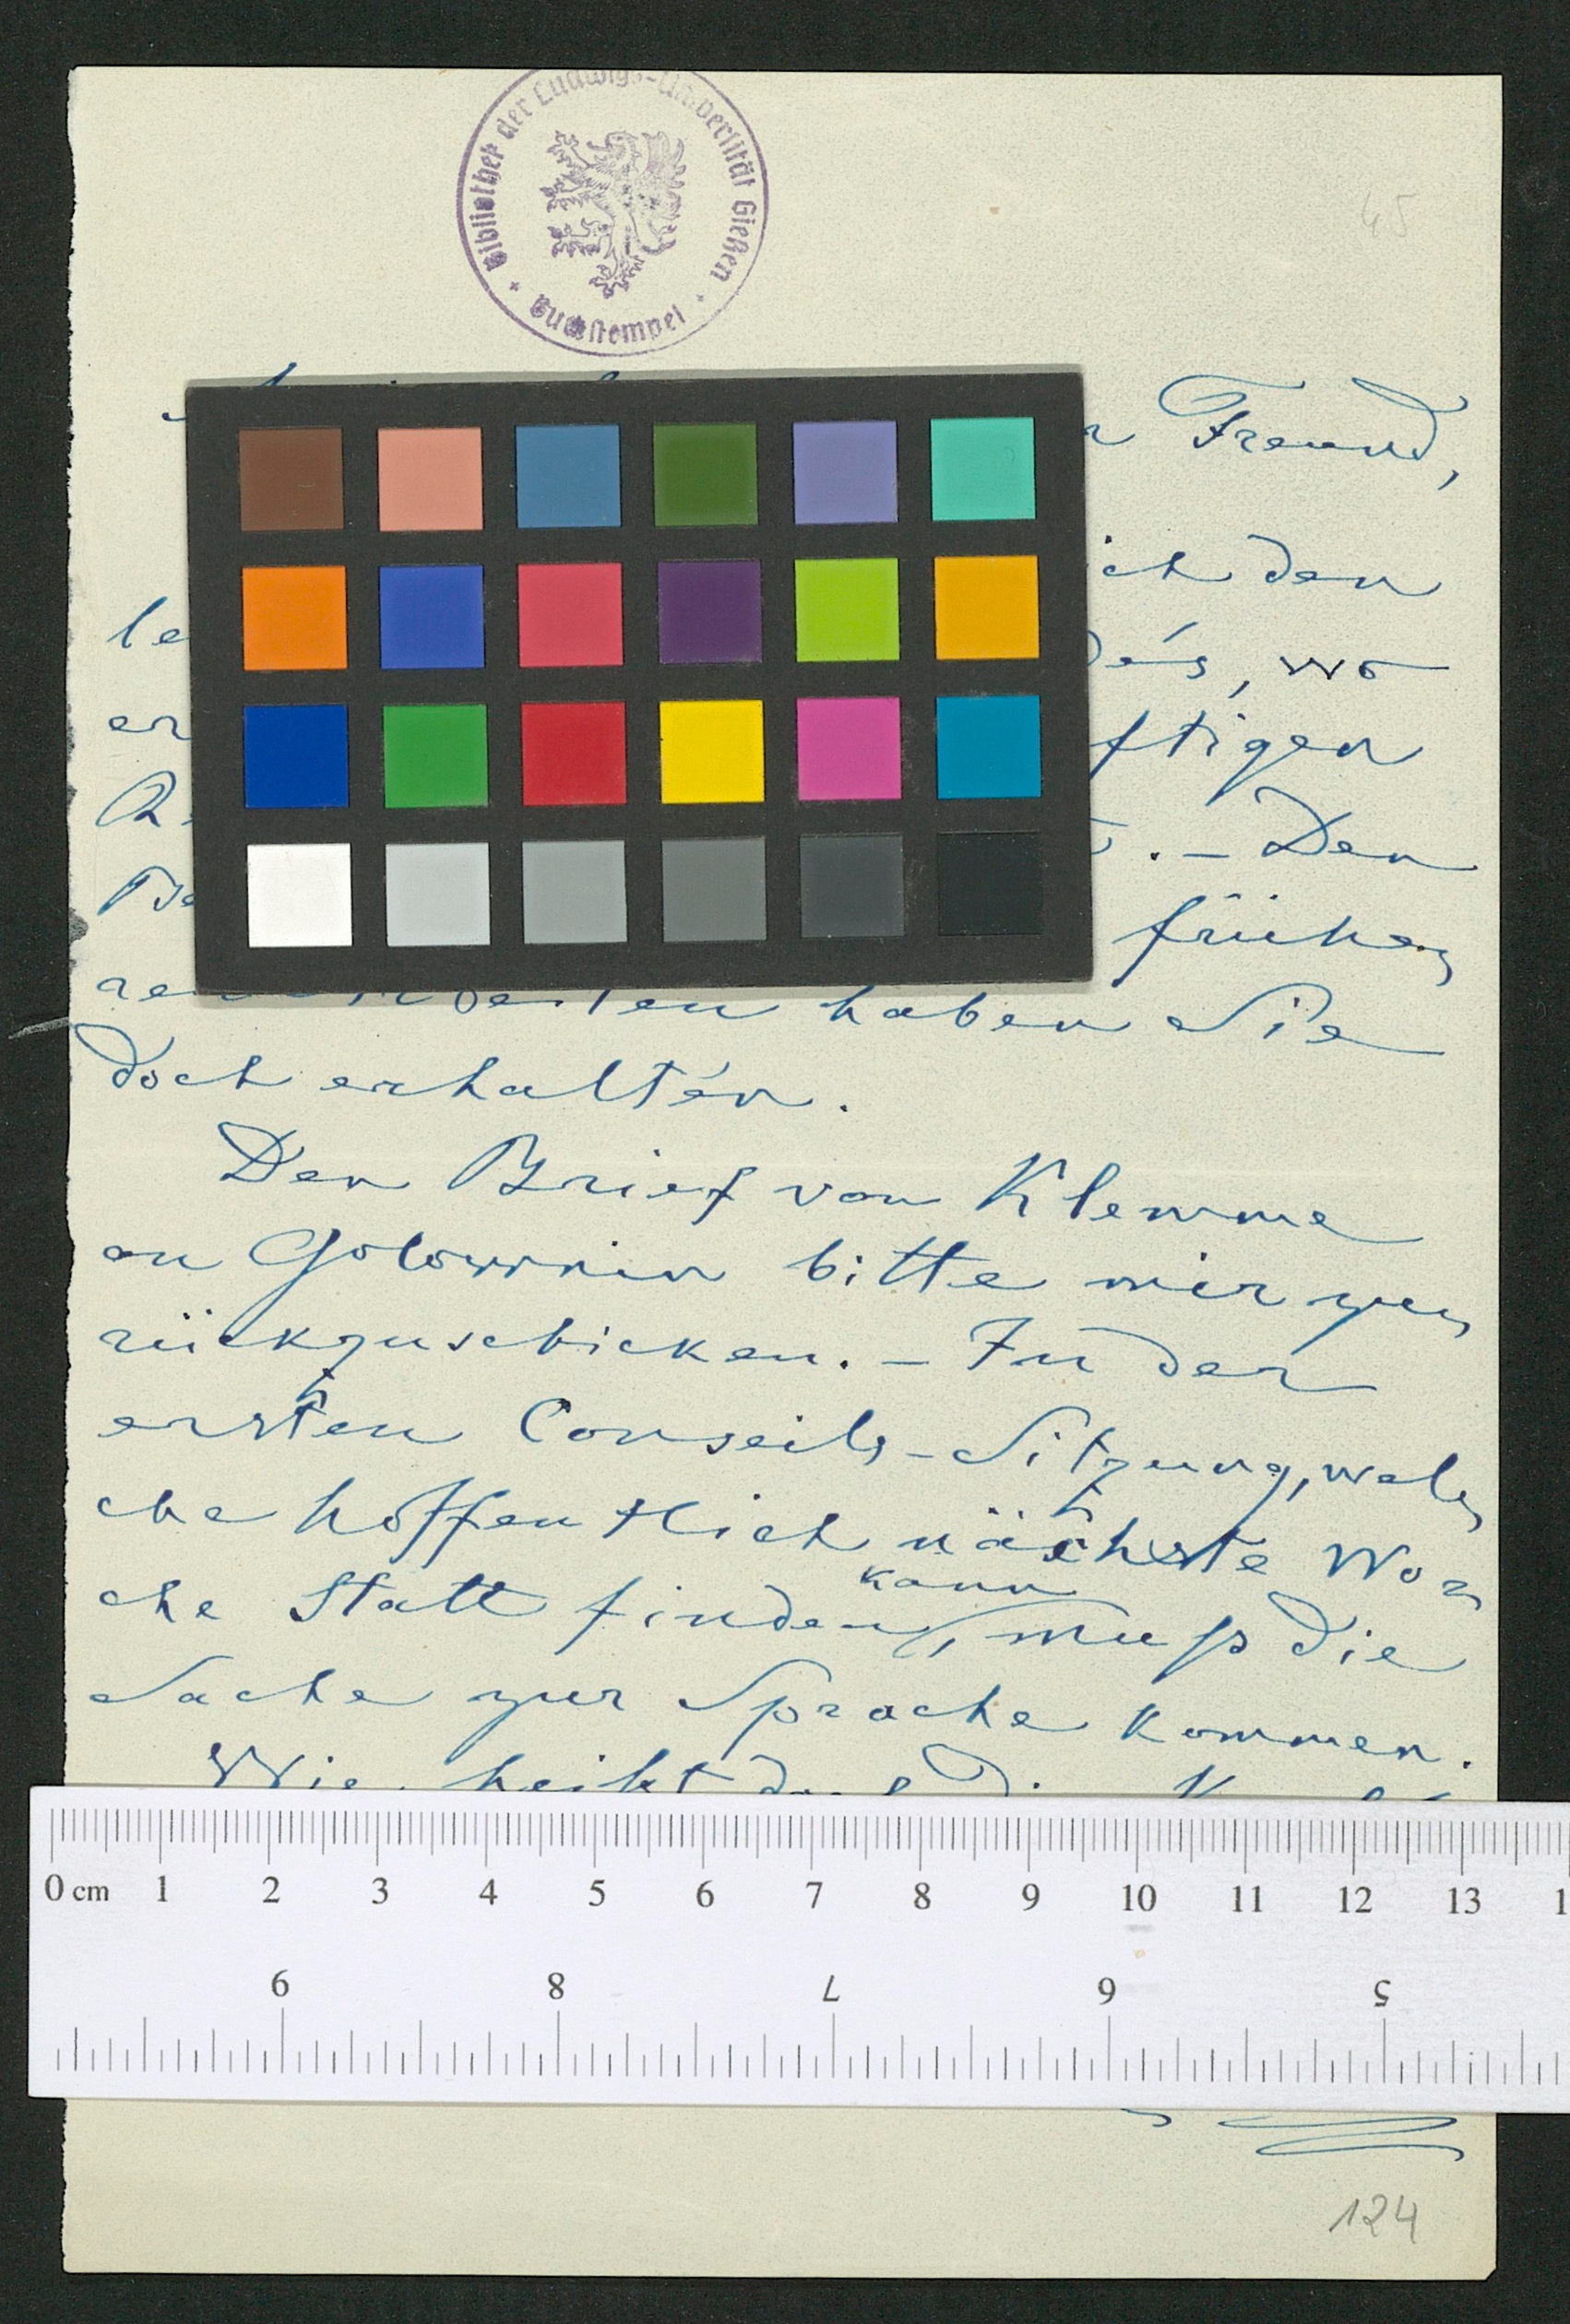 Bibliothek der Ludwigs-Universität Gießen
Buchstempel
45
Freund,
ich den
le
wo
er
ftigen
. – Den
Be
frühe-
haben Sie
doch erhalten.
Den Brief von Klemme
an Golownin bitte mir zu-
rückzuschicken. – In der
ersten Conseils-Sitzung, wel-
che hoffentlich nächste Wo-
kann
che Statt finden, muß die
Sache zur Sprache kommen.
Wie heißt doch die
0 cm 1 2 3 4 5 6 7 8 9 10 11 12 13 1
9 8 7 6 5
124